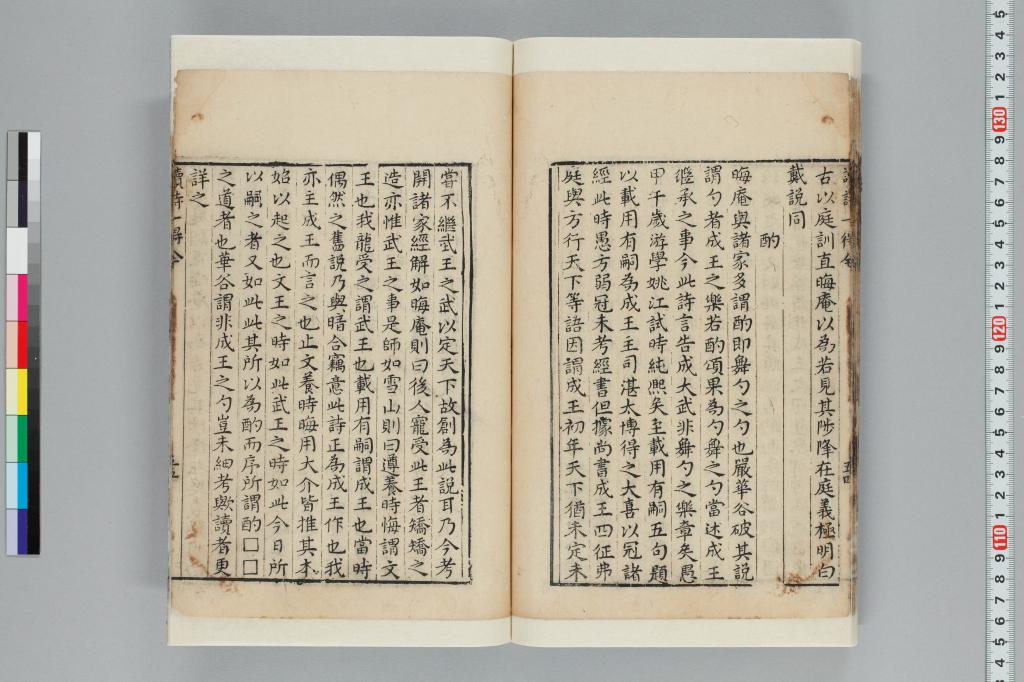 古以庭訓直晦庵以為若見其陟降在庭義極明白
戴說同
酌
晦庵與諸家多謂酌即舞勺之勺也嚴華谷破其說
謂勺者成王之樂若酌頌果為勺舞之勺當述成王
繼承之事今此詩言告成大武非舞勺之樂章矣愚
甲午歲游學姚江試時純熈矣至載用有嗣五句題
以載用有嗣為成王主司湛太博得之大喜以冠諸
經此時愚方弱冠未考經書但據尚書成王四征弗
庭與方行天下等語因謂成王初年天下猶未定未
嘗不繼武王之武以定天下故創為此說耳乃今考
開諸家經解如晦庵則曰後人寵受此王者矯矯之
造亦惟武王之事是師如雪山則曰遵養時悔謂文
王也我龍受之謂武王也載用有嗣謂成王也當時
偶然之舊說乃與暗合竊意此詩正為成王作也我
亦主成王而言之也止文養時晦用大介皆推其本
始以起之也文王之時如此武王之時如此今日所
以嗣之者又如此此其所以為酌而序所謂酌□□
之道者也華谷謂非成王之勺豈未細考歟讀者更
詳之
讀詩一得